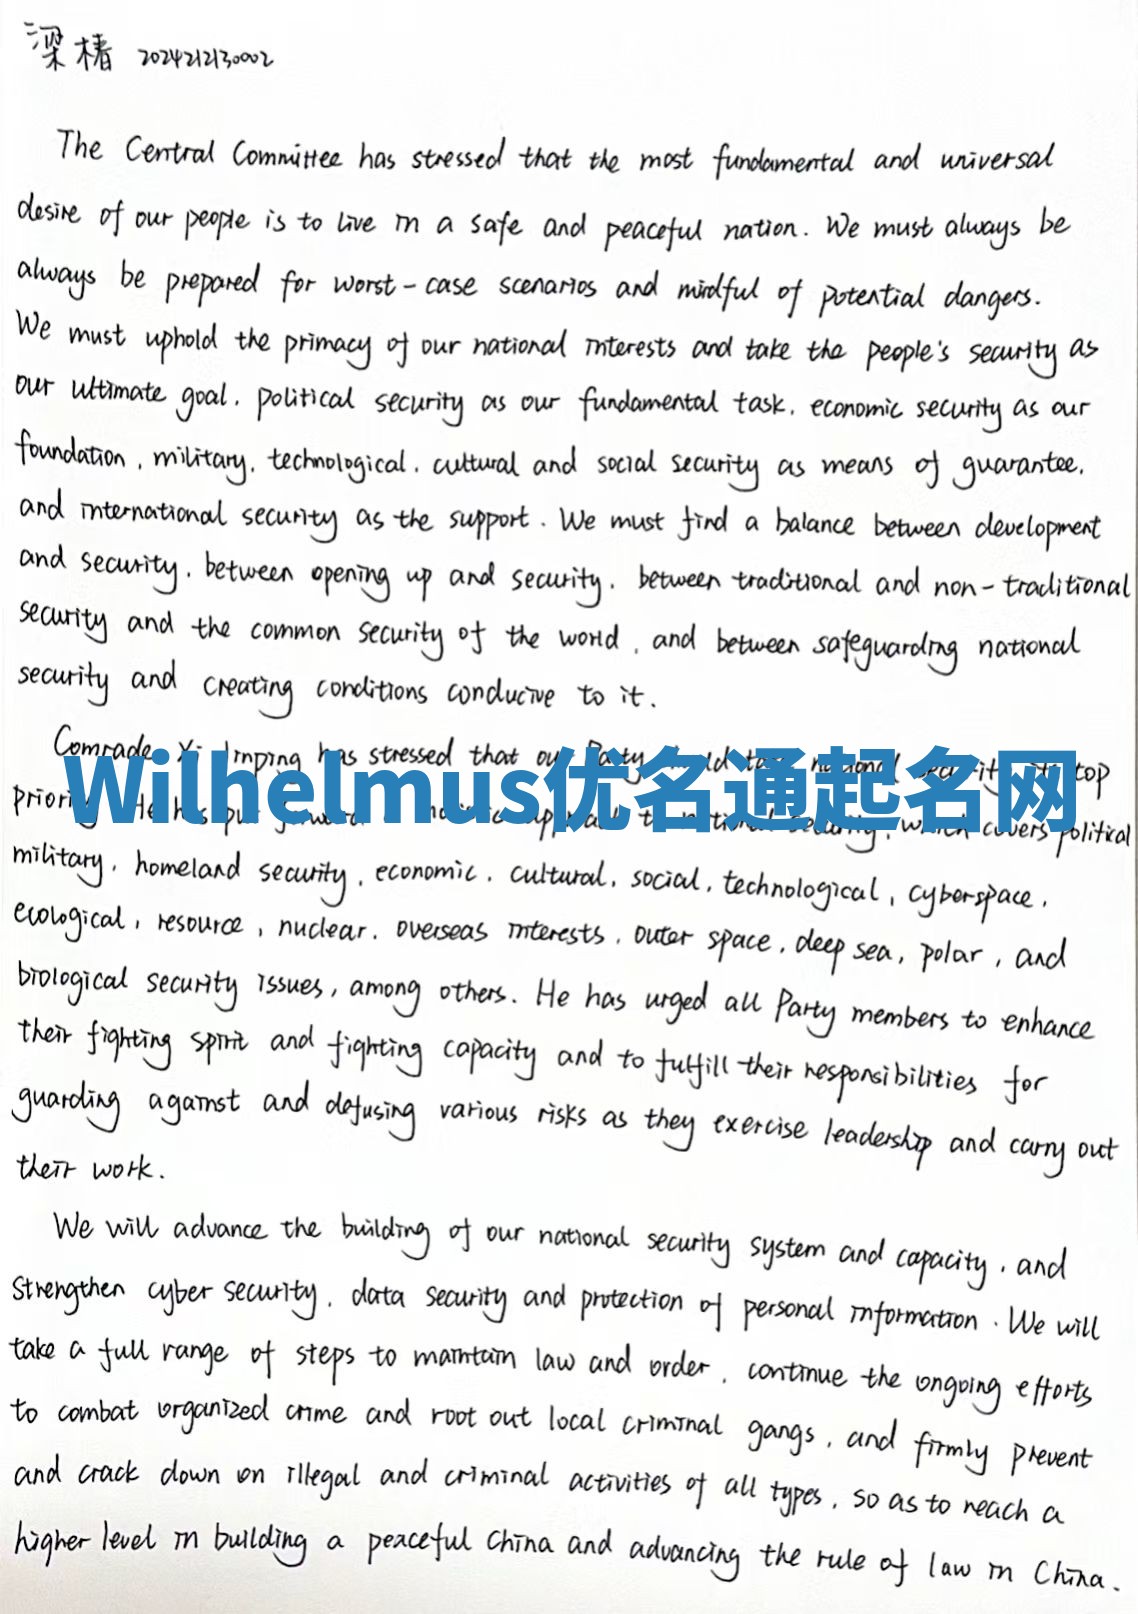 梁椿 2024212130002
The Central Committee has stressed that the most fundamental and universal
desire of our people is to live in a safe and peaceful nation. We must always be
always be prepared for worst-case scenarios and mindful of potential dangers.
We must uphold the primacy of our national interests and take the people's security as
our ultimate goal, political security as our fundamental task, economic security as our
foundation, military, technological, cultural and social security as means of guarantee,
and international security as the support. We must find a balance between development
and security, between opening up and security, between traditional and non-traditional
security and the common security of the world, and between safeguarding national
security and creating conditions conducive to it.
Comrade Jinping has stressed that our Party national top
Wilhelmus优名通起名网
He has which covers political
military, homeland security, economic, cultural, social, technological, cyberspace,
ecological, resource, nuclear, overseas interests, outer space, deep sea, polar, and
biological security issues, among others. He has urged all Party members to enhance
their fighting spirit and fighting capacity and to fulfill their responsibilities for
guarding against and defusing various risks as they exercise leadership and carry out
their work.
We will advance the building of our national security system and capacity, and
strengthen cyber security, data security and protection of personal information. We will
take a full range of steps to maintain law and order, continue the ongoing efforts
to combat organized crime and root out local criminal gangs, and firmly prevent
and crack down on illegal and criminal activities of all types, so as to reach a
higher level in building a peaceful China and advancing the rule of law in China.